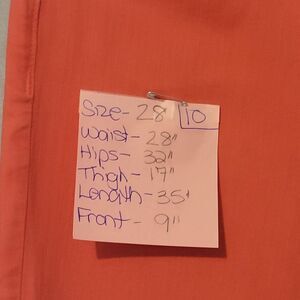 Size- 28 10
Waist- 28"
Hips- 32"
Thigh- 17"
Length- 35"
Front- 9"